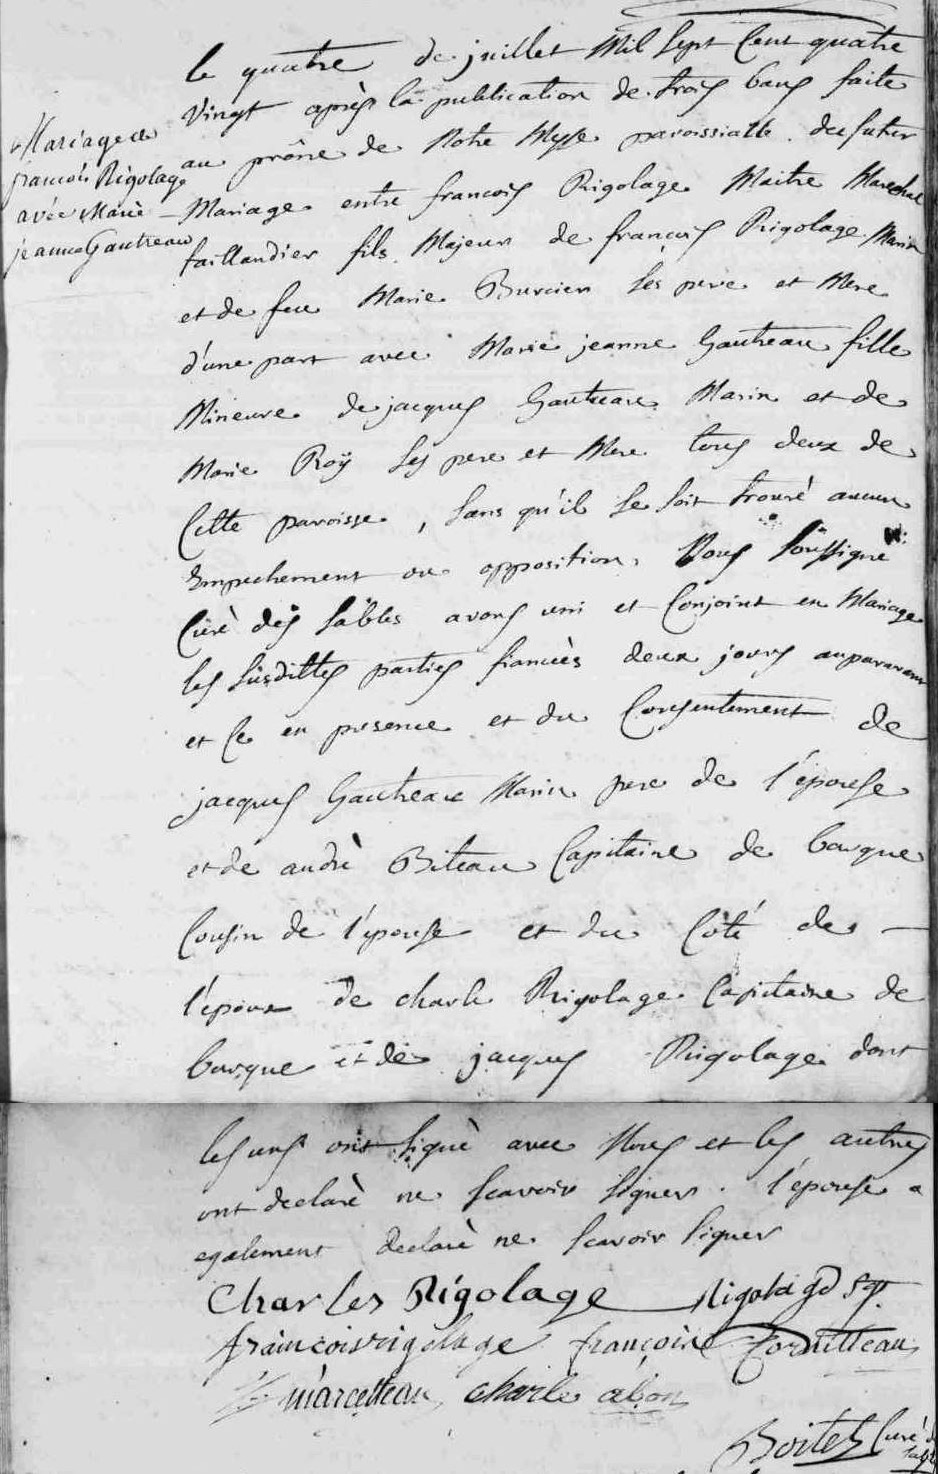 Mariage de
francois Rigolage
avec Marie
jeanne Gautreau
le quatre de juillet Mil Sept Cent quatre
vingt après la publication de trois bans faite
au prône de Notre Messe paroissialle du futur
Mariage entre francois Rigolage Maitre Marechal
taillandier fils Majeur de francois Rigolage Marin
et de feue Marie Burcier ses pere et Mere
d'une part avec Marie jeanne Gautreau fille
Mineure de jacques Gautreau Marin et de
Marie Roÿ ses pere et Mere tous deux de
Cette paroisse, sans qu'il se soit trouvé aucun
Empechement ou opposition, Nous soussigné
Curè des sables avons uni et Conjoint en Mariage
les susdittes parties fiancès deux jours auparavant
et Ce en presence et du Consentement de
jacques Gautreau Marin pere de l'épouse
et de andrè Biteau Capitaine de barque
Cousin de l'épouse et du Côté de
l'époux de charle Rigolage Capitaine de
barque et de jacques Rigolage dont
les uns ont signè avec Nous et les autres
ont declarè ne scavoir signer. l'épouse a
egalement declarè ne scavoir signer
Charles Rigolage
francois rigolage françoise
marcetteau charle
Boitel Curé